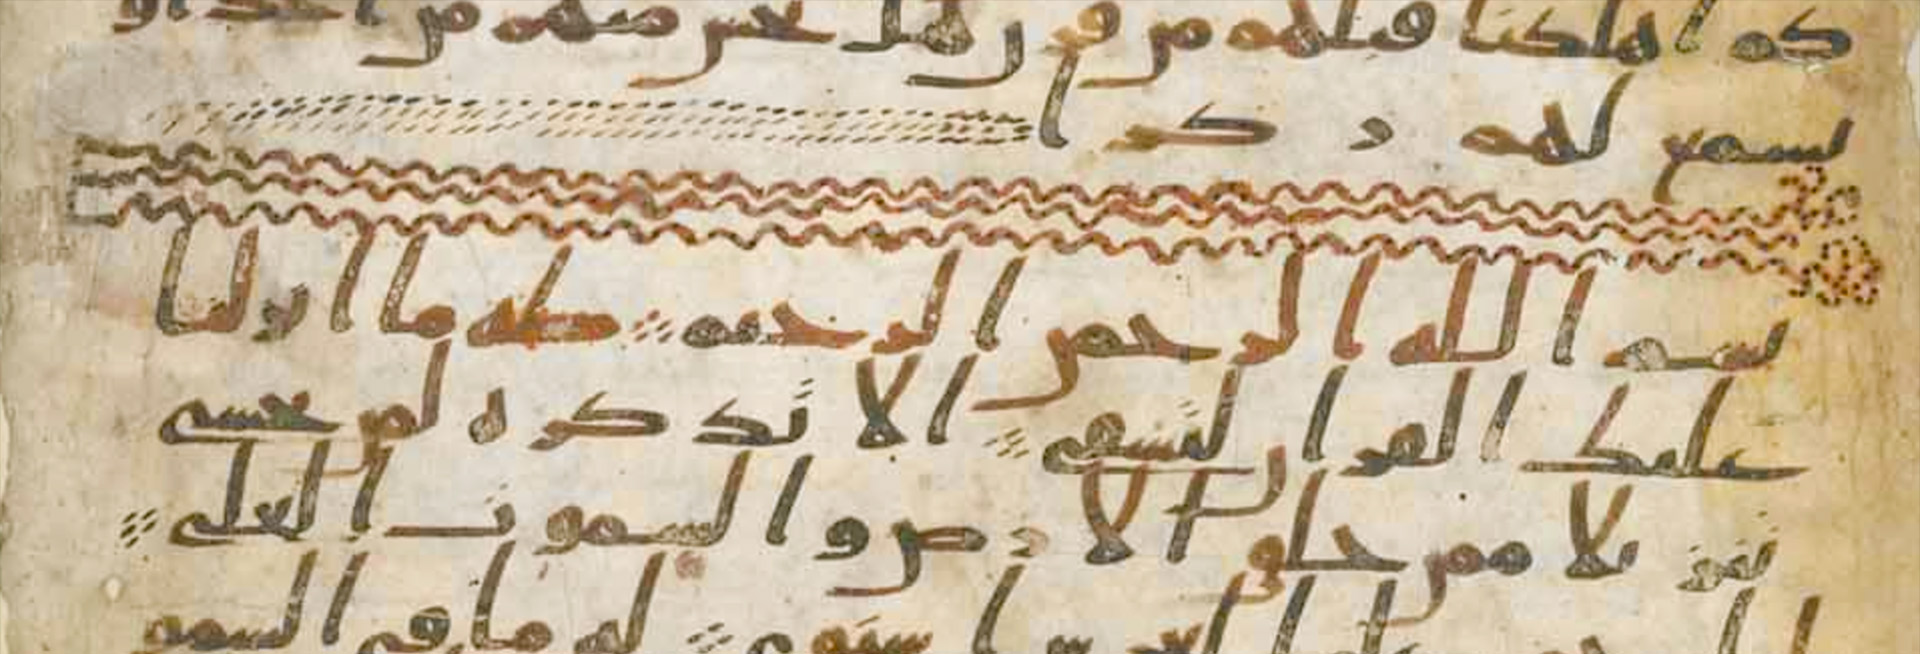 كم اهلكنا قبلهم من قرن هل تحس منهم من احد او
تسمع لهم ركزا
بسم الله الرحمن الرحيم طه ما انزلنا
عليك القران لتشقى الا تذكره لمن يخشى
تنزيلا ممن خلق الارض والسموت العلى
العرش استوى له ما في السمو